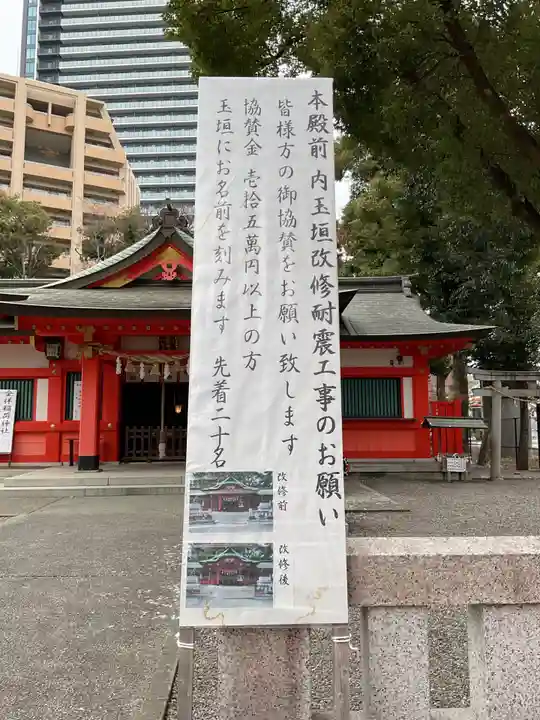 本殿前内玉垣改修耐震工事のお願い
皆様方の御協賛をお願い致します
協賛金 壱拾五萬円以上の方
玉垣にお名前を刻みます 先着二十名
改修前
改修後